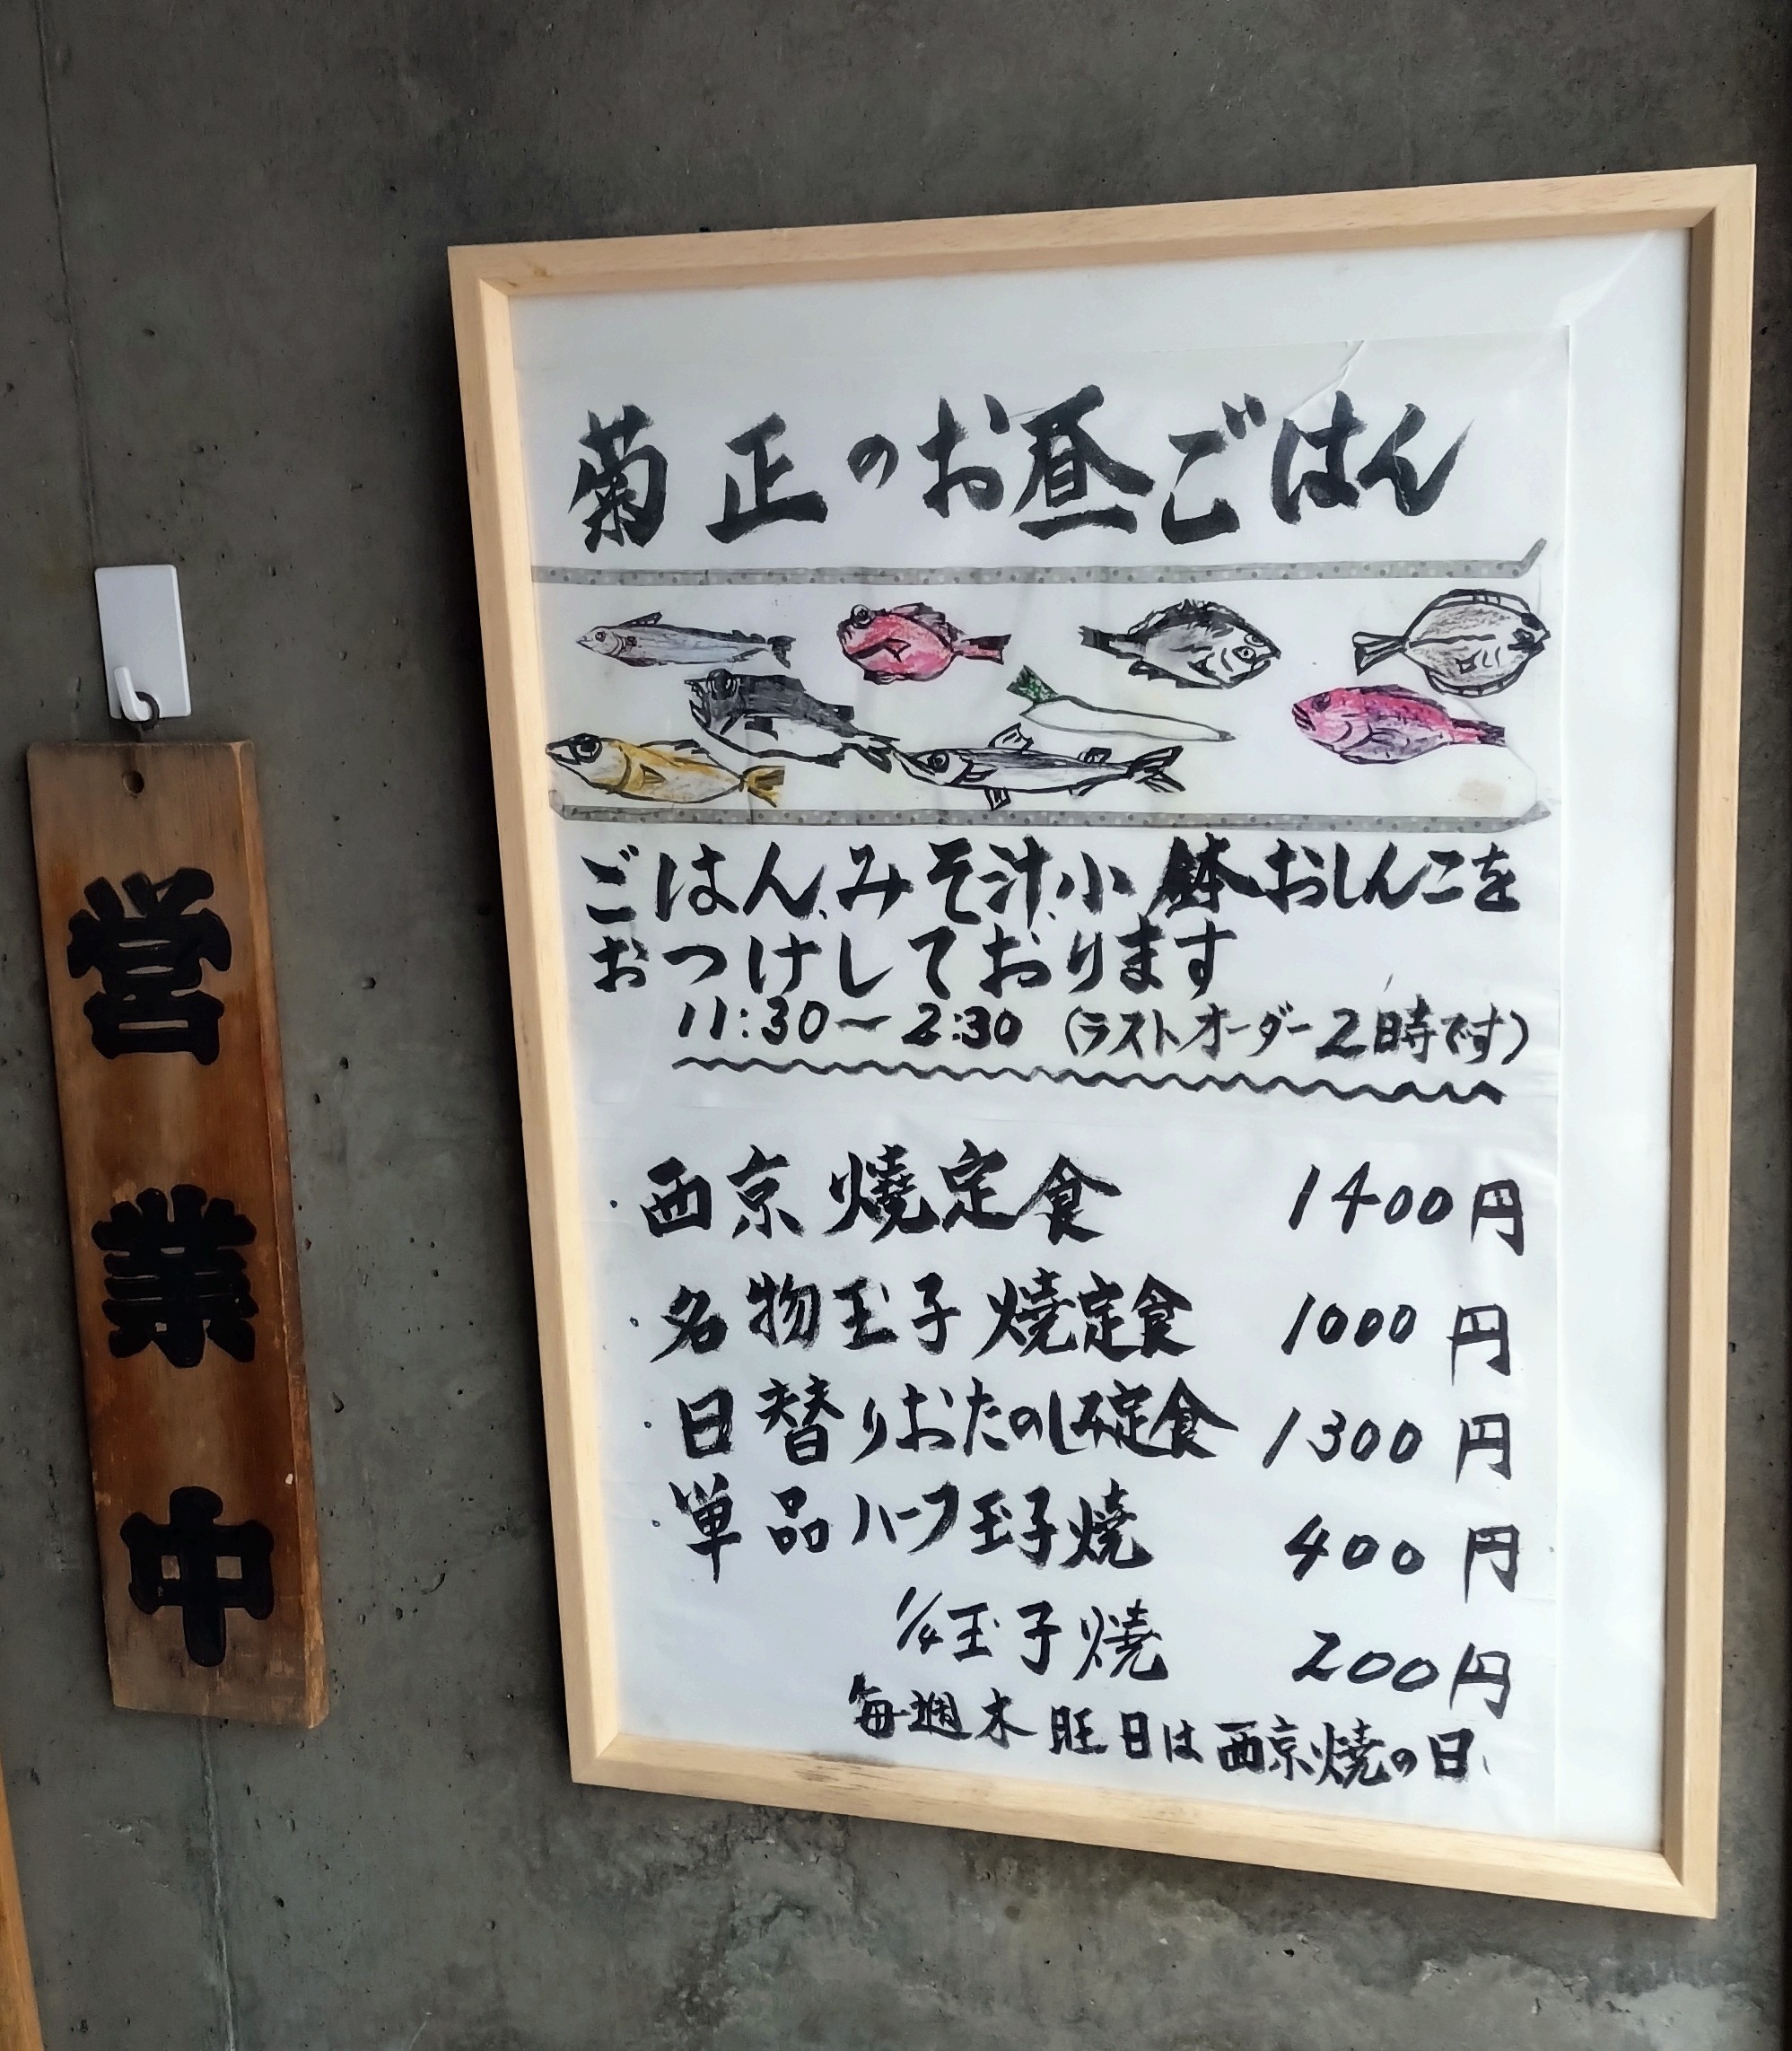 営業中
菊正のお昼ごはん
ごはん、みそ汁、小鉢おしんこを
おつけしております
11:30〜2:30 (ラストオーダー2時です)
・西京燒定食 1400円
・名物玉子焼定食 1000円
・日替りおたのしみ定食 1300円
・単品ハーフ玉子焼 400円
1/4玉子焼 200円
毎週木曜日は西京焼の日